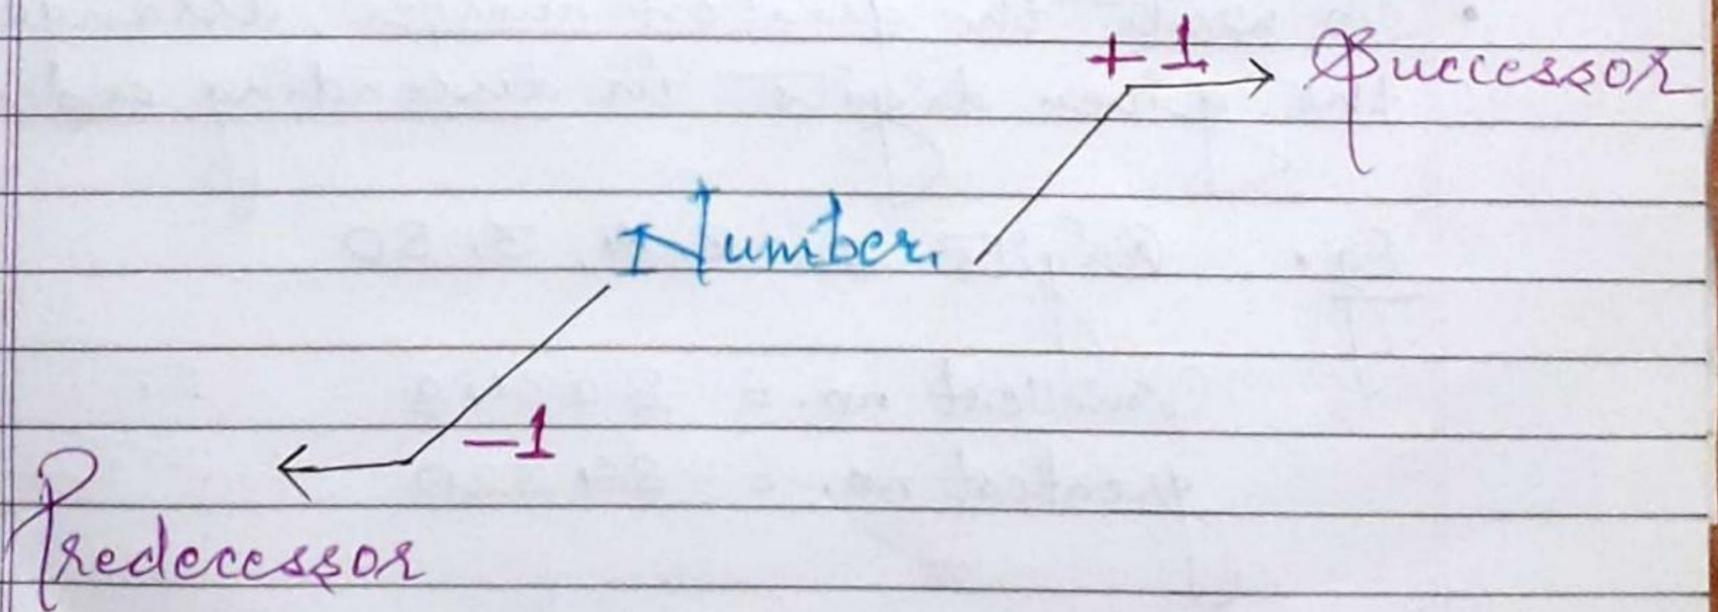 +1 Successor
Number
-1
Predecessor